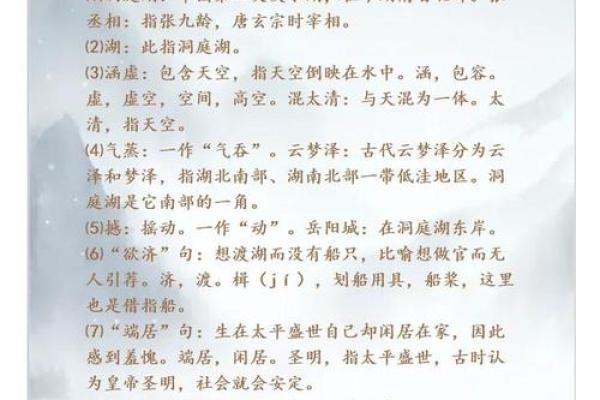 丞相：指张九龄，唐玄宗时宰相。
⑵湖：此指洞庭湖。
⑶涵虚：包含天空，指天空倒映在水中。涵，包容。
虚，虚空，空间，高空。混太清：与天混为一体。太
清，指天空。
⑷气蒸：一作“气吞”。云梦泽：古代云梦泽分为云
泽和梦泽，指湖北南部、湖南北部一带低洼地区。洞
庭湖是它南部的一角。
⑸撼：摇动。一作“动”。岳阳城：在洞庭湖东岸。
⑹“欲济”句：想渡湖而没有船只，比喻想做官而无
人引荐。济，渡。楫（jí），划船用具，船桨，这里
也是借指船。
⑺“端居”句：生在太平盛世自己却闲居在家，因此
感到羞愧。端居，闲居。圣明，指太平盛世，古时认
为皇帝圣明，社会就会安定。